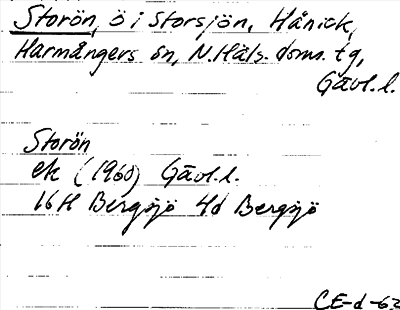 Storön, ö i Storsjön, Hånick,
Harmångers sn, N.Häls. doms. tg,
Gävl.l.
Storön
ek (1960) Gävl.l.
16H Bergsjö 4d Bergsjö
CE-d-63